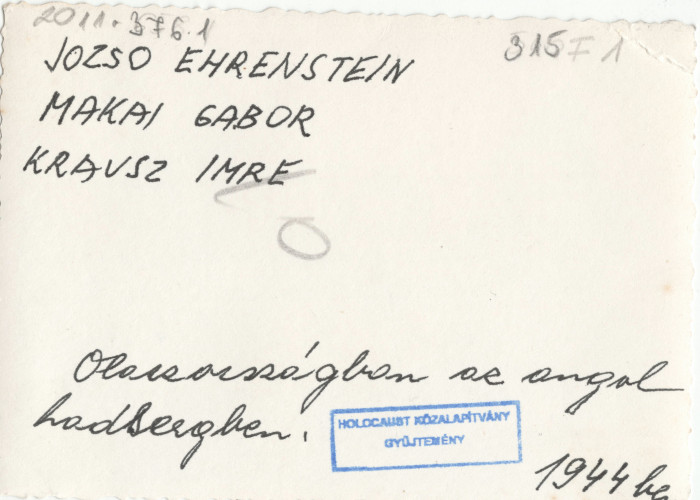 2011.376.1
315 I 1
JOZSO EHRENSTEIN
MAKAI GABOR
KRAUSZ IMRE
Olaszországban az angol
hadseregben.
HOLOCAUST KÖZALAPÍTVÁNY
GYŰJTEMÉNY
1944